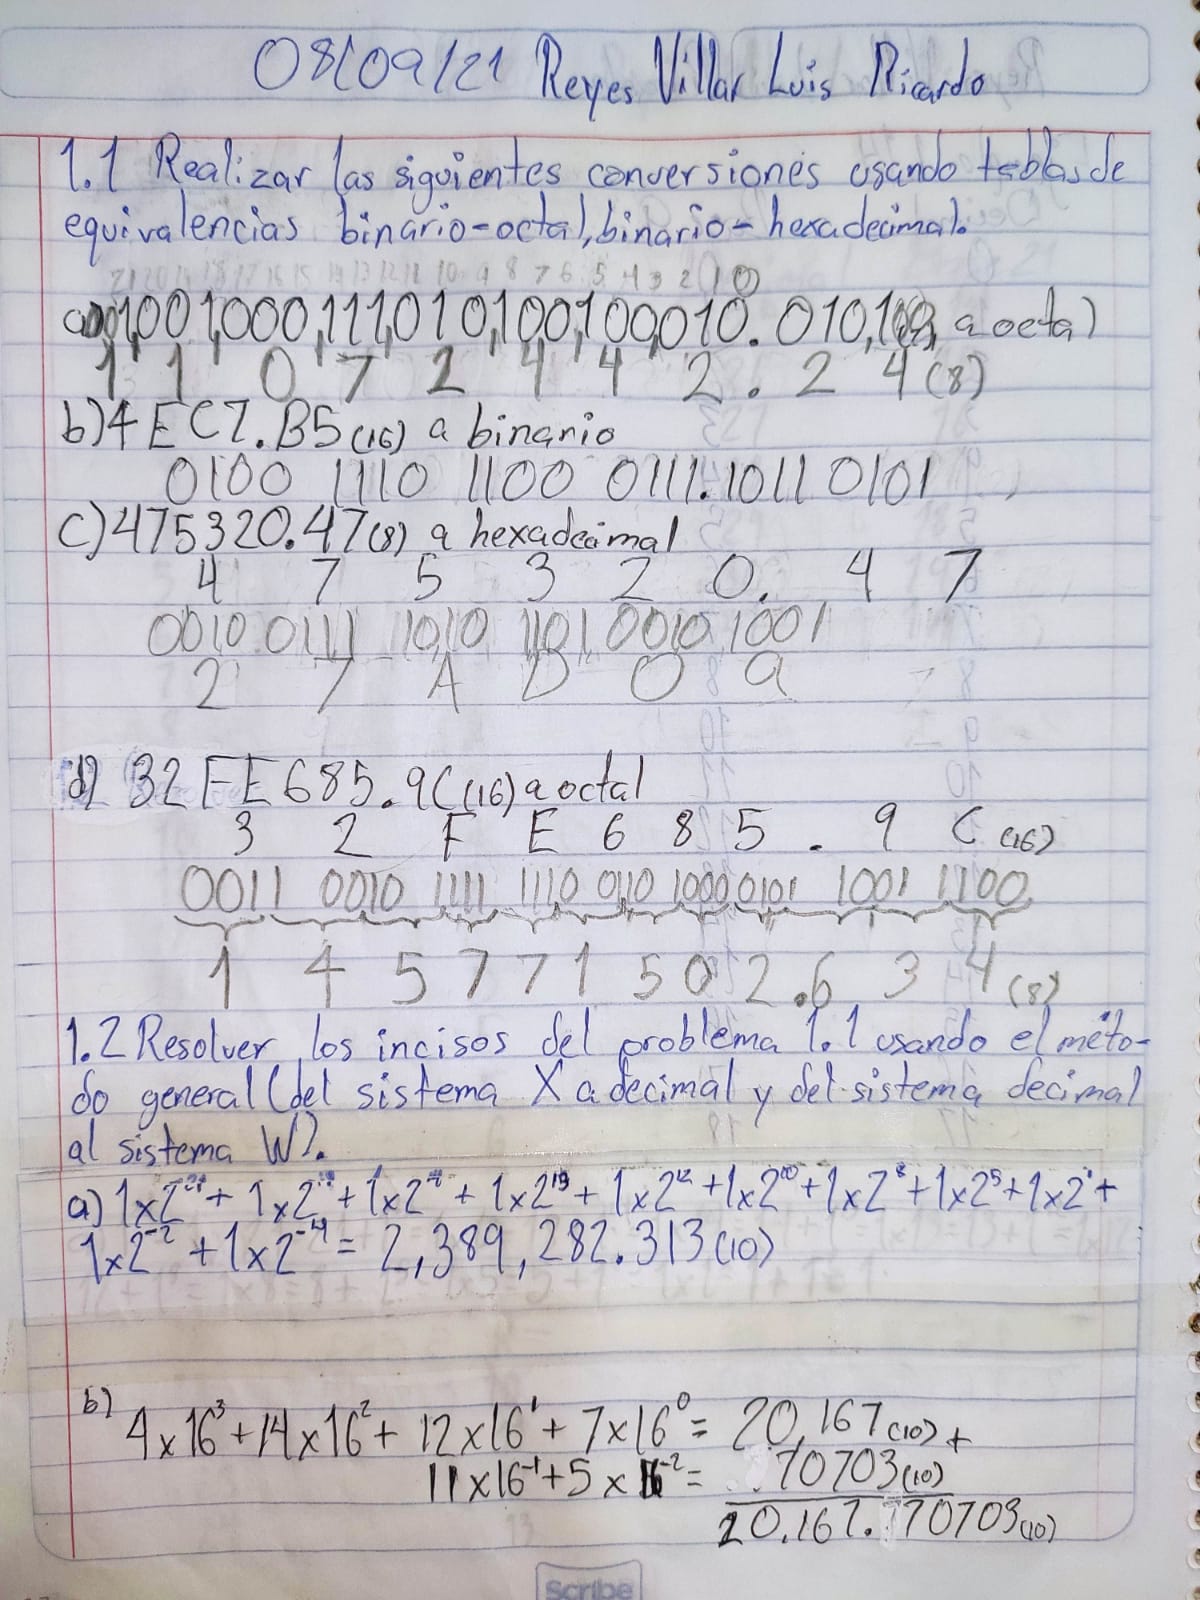 08/09/21 Reyes Villar Luis Ricardo
1.1 Realizar las siguientes conversiones usando tablas de
equivalencias binario-octal, binario-hexadecimal.
21 20 19 18 17 16 15 14 13 12 11 10 9 8 7 6 5 4 3 2 1 0
1001,000,111,010,100,100,010.010,100 a octal
1 1 0 7 2 4 4 2 . 2 4 (8)
b) 4EC7.B5(16) a binario
0100 1110 1100 0111.1011 0101
c) 475320.47(8) a hexadecimal
4 7 5 3 2 0. 4 7
0010 0111 1010 1101 0010 1001
2 7 A D 0 9
d) 32FE685.9C(16) a octal
3 2 F E 6 8 5 . 9 C (16)
0011 0010 1111 1110 0110 1000 0101 1001 1100
1 4 5 7 7 1 5 0 2.6 3 4 (8)
1.2 Resolver los incisos del problema 1.1 usando el méto-
do general (del sistema X a decimal y del sistema decimal
al sistema W).
a) 1x2²¹ + 1x2¹⁸ + 1x2 + 1x2¹³ + 1x2¹² + 1x2¹⁰ + 1x2⁸ + 1x2⁵ + 1x2¹ +
1x2⁻² + 1x2⁻⁴ = 2,389,282.313(10)
b) 4x16³ + 14x16² + 12x16¹ + 7x16⁰ = 20,167(10) +
11x16⁻¹ + 5x16⁻² = 70703(10)
20,167.770703(10)
Scribe